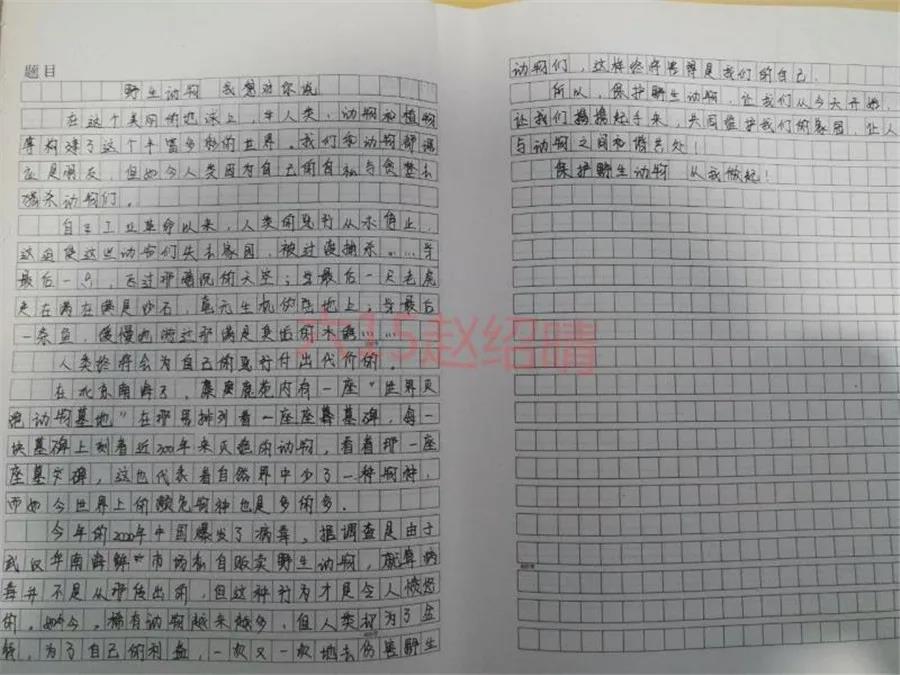 题目
野生动物 我想对你说
在这个美丽的地球上,是人类、动物和植物
等构建了这个丰富多彩的世界。我们和动物都
应是朋友,但如今人类因为自己的自私与贪婪去
猎杀动物们。
自工业革命以来,人类的恶行从未停止,
这迫使这些动物们失去家园,被过度捕杀……当
最后一只,飞过那昏沉的天空;当最后一只老虎
走在满在满是沙石,毫无生机的陆地上;当最后
一条鱼,缓慢地游过那满是臭的水……
人类终将会为自己的恶行付出代价的。
在北京南海子,麋鹿苑内有一座“世界灭
绝动物墓地”在那里排列着一座座墓碑,每一
块墓碑上刻着近300年来灭绝的动物,看着那一座
座墓碑,这也代表着自然界中少了一种物种,
而如今世界上的濒危物种也是多的多。
今年的2020年中国爆发了病毒,据调查是由于
武汉华南海鲜市场私自贩卖野生动物,就算病
毒并不是从那传出的,但这种行为才是令人愤怒
的。如今,稀有动物越来越多,但人类却为了金
钱,为了自己的利益,一次又一次地去伤害野生
动物们,这样终将害得是我们的自己.
所以,保护野生动物,让我们从今天开始,
让我们携起手来,共同维护我们的家园,让人
与动物之间和谐共处!
保护野生动物 从我做起!
六15赵绍晴